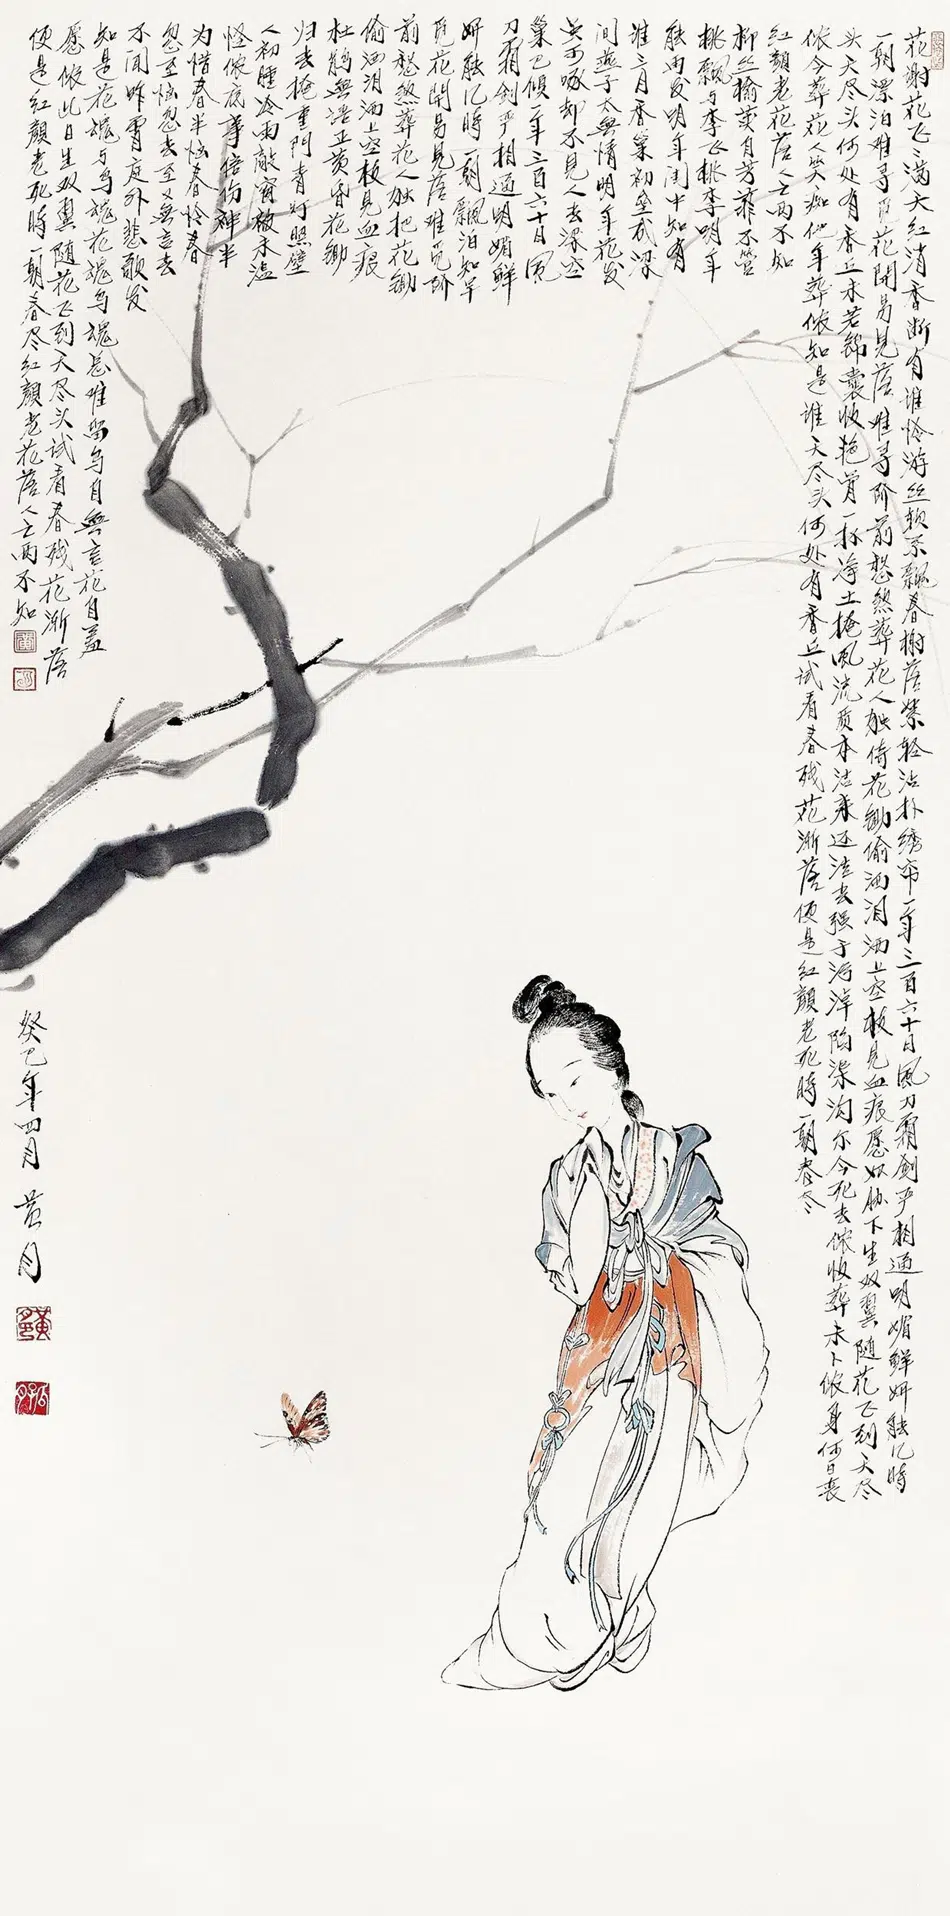 花谢花飞飞满天红消香断有谁怜游丝软系飘春榭落絮轻沾扑绣帘一年三百六十日風刀霜剑严相逼明媚鲜妍能几時
一朝漂泊难寻觅花開易見落难寻阶前愁煞葬花人独倚花锄偷洒泪洒上空枝見血痕愿奴胁下生双翼随花飞到天尽
头天尽头何处有香丘未若錦囊收艳骨一抔净土掩風流质本洁来还洁去强于污淖陷渠沟尔今死去侬收葬未卜侬身何日丧
侬今葬花人笑痴他年葬侬知是谁天尽头何处有香丘试看春残花渐落便是红顏老死時一朝春尽
红顏老花落人亡两不知
柳丝榆荚自芳菲不管
桃飘与李飞桃李明年
能再发明年闺中知有
谁三月香巢初垒成梁
间燕子太無情明年花发
虽可啄却不見人去梁空
巢已倾一年三百六十日風
刀霜剑严相逼明媚鲜
妍能几時一朝飘泊
觅花開易見落难觅阶
前愁煞葬花人独把花锄
偷洒泪洒上空枝見血痕
杜鹃無语正黄昏花锄
归去掩重門青灯照壁
人初睡冷雨敲窗被未温
怪侬底事倍伤神半
为惜春半恼春怜春
忽至恼忽去至又無言去
不闻昨宵庭外悲歌发
知是花魂与鸟魂花魂鸟魂总难留鸟自無言花自羞
愿侬此日生双翼随花飞到天尽头试看春残花渐落
便是红顏老死時一朝春尽红顏老花落人亡两不知
癸巳年四月 黄月